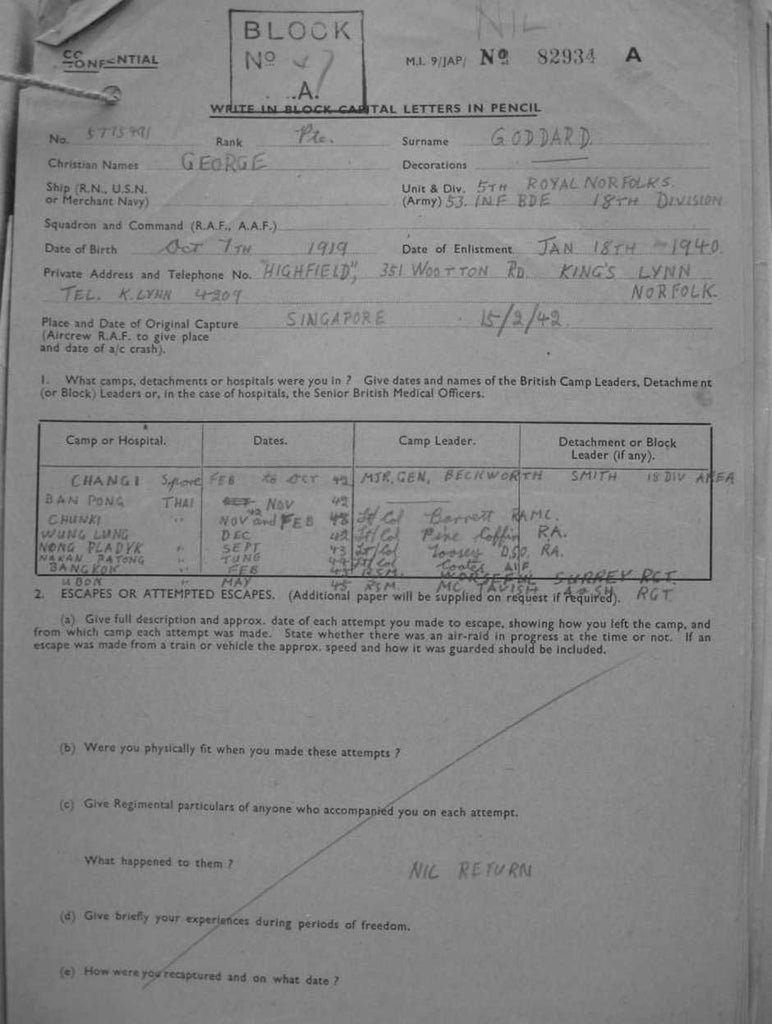 NIL
CONFIDENTIAL
BLOCK
Nº 47
A.
M.I. 9/JAP/ Nº 82934 A
WRITE IN BLOCK CAPITAL LETTERS IN PENCIL
No. 5775491 Rank Pte. Surname GODDARD.
Christian Names GEORGE Decorations
Ship (R.N., U.S.N. or Merchant Navy)
Unit & Div. (Army) 5TH ROYAL NORFOLKS.
53. INF BDE 18TH DIVISION
Squadron and Command (R.A.F., A.A.F.)
Date of Birth Oct 7TH 1919 Date of Enlistment JAN 18TH 1940.
Private Address and Telephone No. "HIGHFIELD", 351 WOOTTON RD. KING'S LYNN
TEL. K. LYNN 4209 NORFOLK.
Place and Date of Original Capture SINGAPORE 15/2/42.
(Aircrew R.A.F. to give place
and date of a/c crash).
1. What camps, detachments or hospitals were you in ? Give dates and names of the British Camp Leaders, Detachment
(or Block) Leaders or, in the case of hospitals, the Senior British Medical Officers.
Camp or Hospital. Dates. Camp Leader. Detachment or Block Leader (if any).
CHANGI S'pore FEB to OCT 42 MJR. GEN, BECKWORTH SMITH 18 DIV AREA
BAN PONG THAI NOV 42
CHUNKI " NOV 42 and FEB 43 Lt/Col Barrett RAMC.
WUNG LUNG DEC 42 Lt/Col Pine Coffin RA.
NONG PLADYK " SEPT 43 Lt/Col Toosey DSO. RA.
NAKAN PATONG " JUNE 44 Lt/Col Coates AIF.
BANGKOK " FEB 45 RSM. SURREY RGT.
UBON " MAY 45 RSM. MC TAVISH A & SH RGT
2. ESCAPES OR ATTEMPTED ESCAPES. (Additional paper will be supplied on request if required).
(a) Give full description and approx. date of each attempt you made to escape, showing how you left the camp, and
from which camp each attempt was made. State whether there was an air-raid in progress at the time or not. If an
escape was made from a train or vehicle the approx. speed and how it was guarded should be included.
(b) Were you physically fit when you made these attempts ?
(c) Give Regimental particulars of anyone who accompanied you on each attempt.
What happened to them ?
NIL RETURN
(d) Give briefly your experiences during periods of freedom.
(e) How were you recaptured and on what date ?